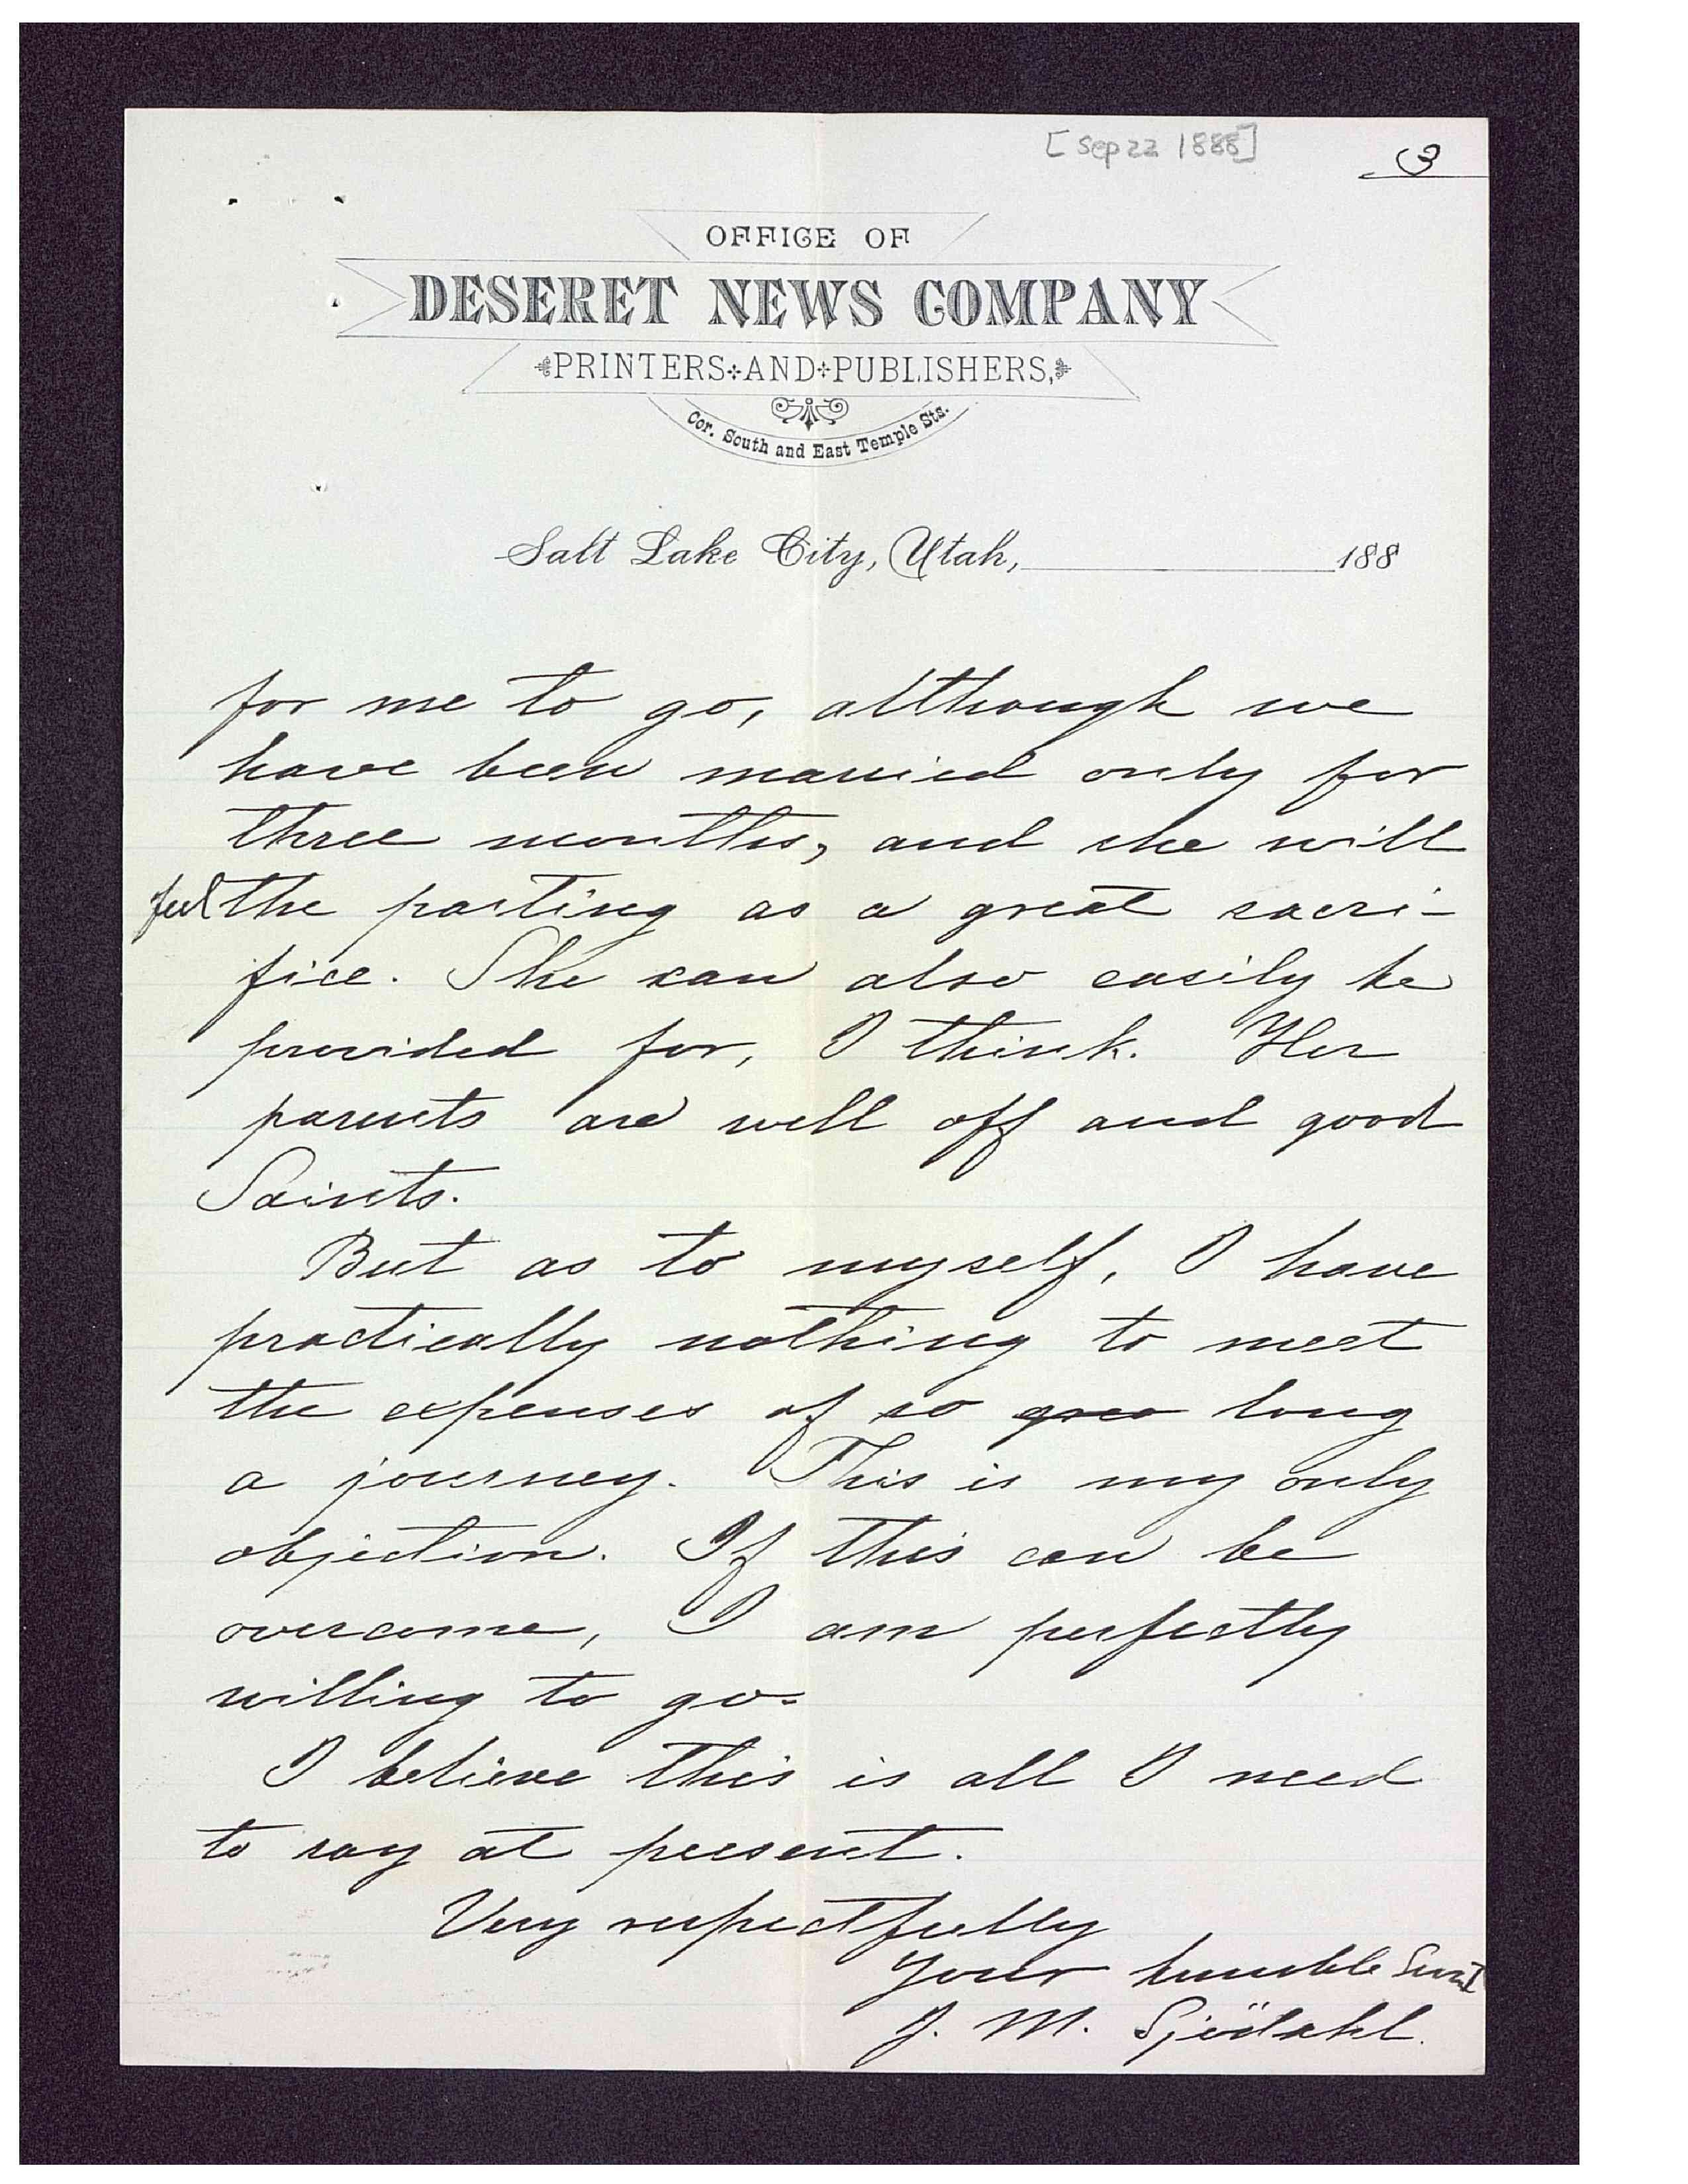 [Sep 22 1888]
3
OFFICE OF
DESERET NEWS COMPANY
PRINTERS AND PUBLISHERS,
Cor. South and East Temple Sts.
Salt Lake City, Utah, 188
for me to go, although we
have been married only for
three months, and she will
feel the parting as a great sacri-
fice. She can also easily be
provided for, I think. Her
parents are well off and good
Saints.
But as to myself, I have
practically nothing to meet
the expenses of so grea long
a journey. This is my only
objection. If this can be
overcome, I am perfectly
willing to go.
I believe this is all I need
to say at present.
Very respectfully
Your humble Servt
J. M. Sjödahl.